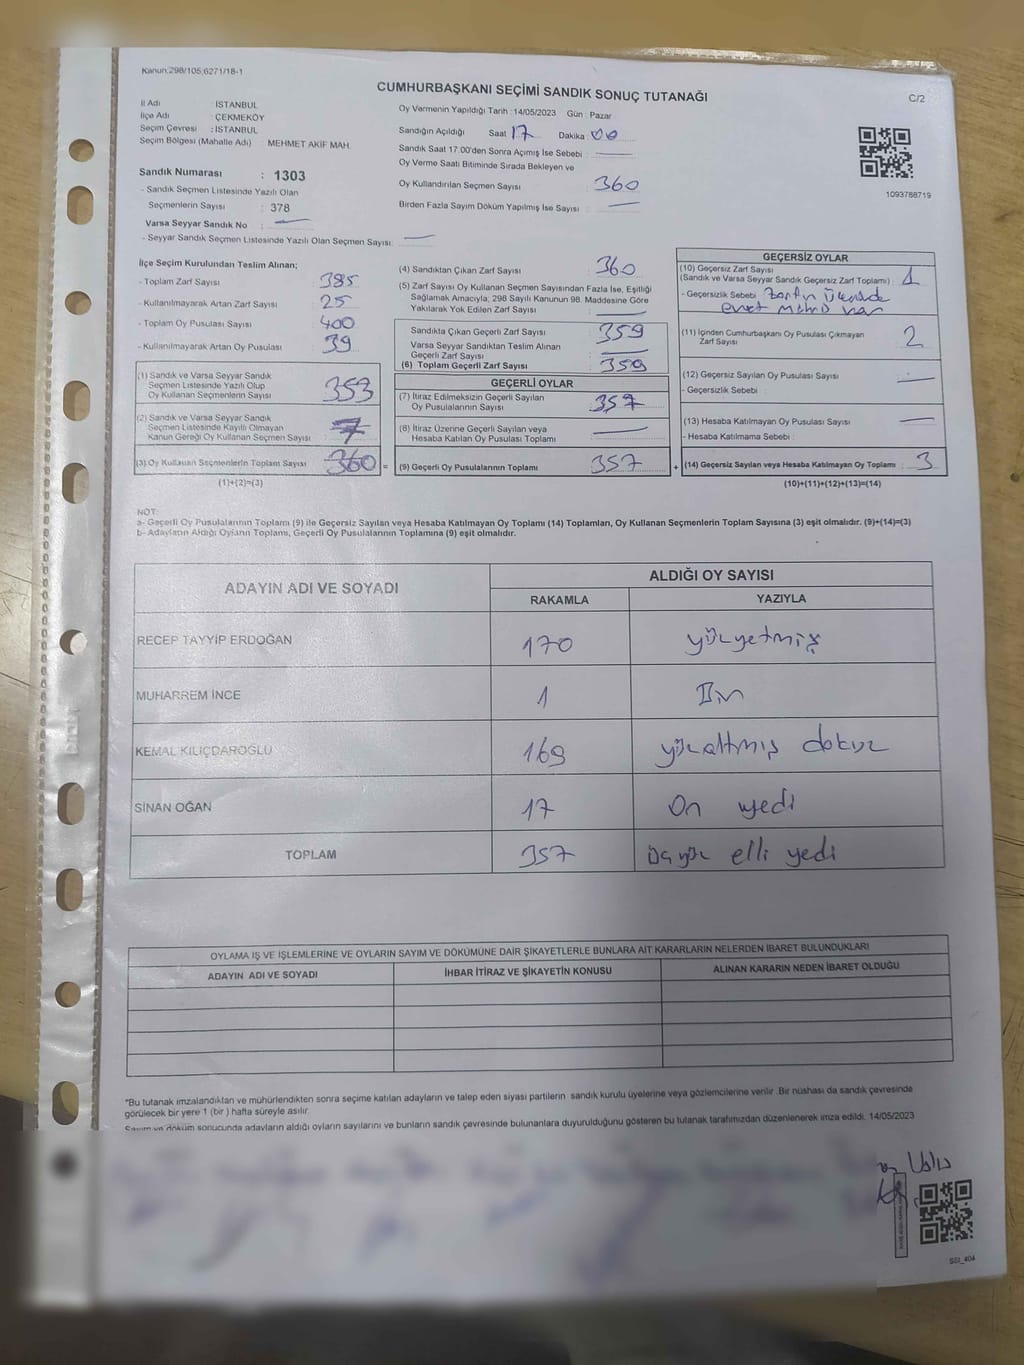 Kanun:298/105,6271/18-1
CUMHURBAŞKANI SEÇİMİ SANDIK SONUÇ TUTANAĞI
C/2
İl Adı : İSTANBUL
İlçe Adı : ÇEKMEKÖY
Seçim Çevresi : İSTANBUL
Seçim Bölgesi (Mahalle Adı) : MEHMET AKİF MAH.
Sandık Numarası : 1303
- Sandık Seçmen Listesinde Yazılı Olan
Seçmenlerin Sayısı : 378
Varsa Seyyar Sandık No :
- Seyyar Sandık Seçmen Listesinde Yazılı Olan Seçmen Sayısı:
Oy Vermenin Yapıldığı Tarih :14/05/2023 Gün : Pazar
Sandığın Açıldığı Saat 17 Dakika 00
Sandık Saat 17:00'den Sonra Açımış İse Sebebi :
Oy Verme Saati Bitiminde Sırada Bekleyen ve
Oy Kullandırılan Seçmen Sayısı : 360
Birden Fazla Sayım Döküm Yapılmış İse Sayısı :
1093788719
İlçe Seçim Kurulundan Teslim Alınan;
- Toplam Zarf Sayısı : 385
- Kullanılmayarak Artan Zarf Sayısı : 25
- Toplam Oy Pusulası Sayısı : 400
- Kullanılmayarak Artan Oy Pusulası : 39
(1) Sandık ve Varsa Seyyar Sandık
Seçmen Listesinde Yazılı Olup
Oy Kullanan Seçmenlerin Sayısı : 353
(2) Sandık ve Varsa Seyyar Sandık
Seçmen Listesinde Kayıtlı Olmayan
Kanun Gereği Oy Kullanan Seçmen Sayısı : 7
(3) Oy Kullanan Seçmenlerin Toplam Sayısı : 360 =
(1)+(2)=(3)
(4) Sandıktan Çıkan Zarf Sayısı : 360
(5) Zarf Sayısı Oy Kullanan Seçmen Sayısından Fazla İse, Eşitliği
Sağlamak Amacıyla; 298 Sayılı Kanunun 98. Maddesine Göre
Yakılarak Yok Edilen Zarf Sayısı :
Sandıkta Çıkan Geçerli Zarf Sayısı : 359
Varsa Seyyar Sandıktan Teslim Alınan
Geçerli Zarf Sayısı :
(6) Toplam Geçerli Zarf Sayısı : 359
GEÇERLİ OYLAR
(7) İtiraz Edilmeksizin Geçerli Sayılan
Oy Pusulalarının Sayısı : 357
(8) İtiraz Üzerine Geçerli Sayılan veya
Hesaba Katılan Oy Pusulası Toplamı :
(9) Geçerli Oy Pusulalarının Toplamı : 357 +
GEÇERSİZ OYLAR
(10) Geçersiz Zarf Sayısı
(Sandık ve Varsa Seyyar Sandık Geçersiz Zarf Toplamı) : 1
- Geçersizlik Sebebi : Zarfın üzerinde
evet mührü var
(11) İçinden Cumhurbaşkanı Oy Pusulası Çıkmayan
Zarf Sayısı : 2
(12) Geçersiz Sayılan Oy Pusulası Sayısı :
- Geçersizlik Sebebi :
(13) Hesaba Katılmayan Oy Pusulası Sayısı :
- Hesaba Katılmama Sebebi :
(14) Geçersiz Sayılan veya Hesaba Katılmayan Oy Toplamı : 3
(10)+(11)+(12)+(13)=(14)
NOT:
a- Geçerli Oy Pusulalarının Toplamı (9) ile Geçersiz Sayılan veya Hesaba Katılmayan Oy Toplamı (14) Toplamları, Oy Kullanan Seçmenlerin Toplam Sayısına (3) eşit olmalıdır. (9)+(14)=(3)
b- Adayların Aldığı Oyların Toplamı, Geçerli Oy Pusulalarının Toplamına (9) eşit olmalıdır.
ADAYIN ADI VE SOYADI
ALDIĞI OY SAYISI
RAKAMLA YAZIYLA
RECEP TAYYİP ERDOĞAN 170 yüzyetmiş
MUHARREM İNCE 1 Bir
KEMAL KILIÇDAROĞLU 169 yüzaltmış dokuz
SİNAN OĞAN 17 On yedi
TOPLAM 357 üçyüz elli yedi
OYLAMA İŞ VE İŞLEMLERİNE VE OYLARIN SAYIM VE DÖKÜMÜNE DAİR ŞİKAYETLERLE BUNLARA AİT KARARLARIN NELERDEN İBARET BULUNDUKLARI
ADAYIN ADI VE SOYADI İHBAR İTİRAZ VE ŞİKAYETİN KONUSU ALINAN KARARIN NEDEN İBARET OLDUĞU
*Bu tutanak imzalandıktan ve mühürlendikten sonra seçime katılan adayların ve talep eden siyasi partilerin sandık kurulu üyelerine veya gözlemcilerine verilir. Bir nüshası da sandık çevresinde
görülecek bir yere 1 (bir ) hafta süreyle asılır.
Sayım ve döküm sonucunda adayların aldığı oyların sayılarını ve bunların sandık çevresinde bulunanlara duyurulduğunu gösteren bu tutanak tarafımızdan düzenlenerek imza edildi. 14/05/2023
SSI_404